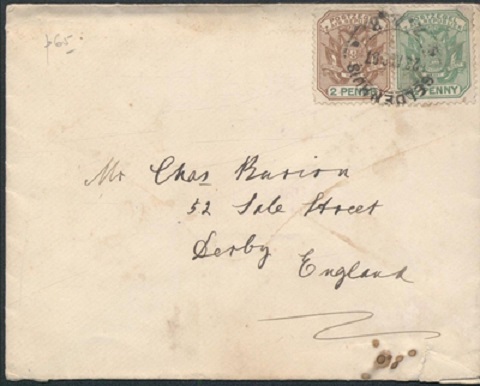 £65
2 PENCE
PENNY
Mr Chas Burion
52 Sale Street
Derby
England